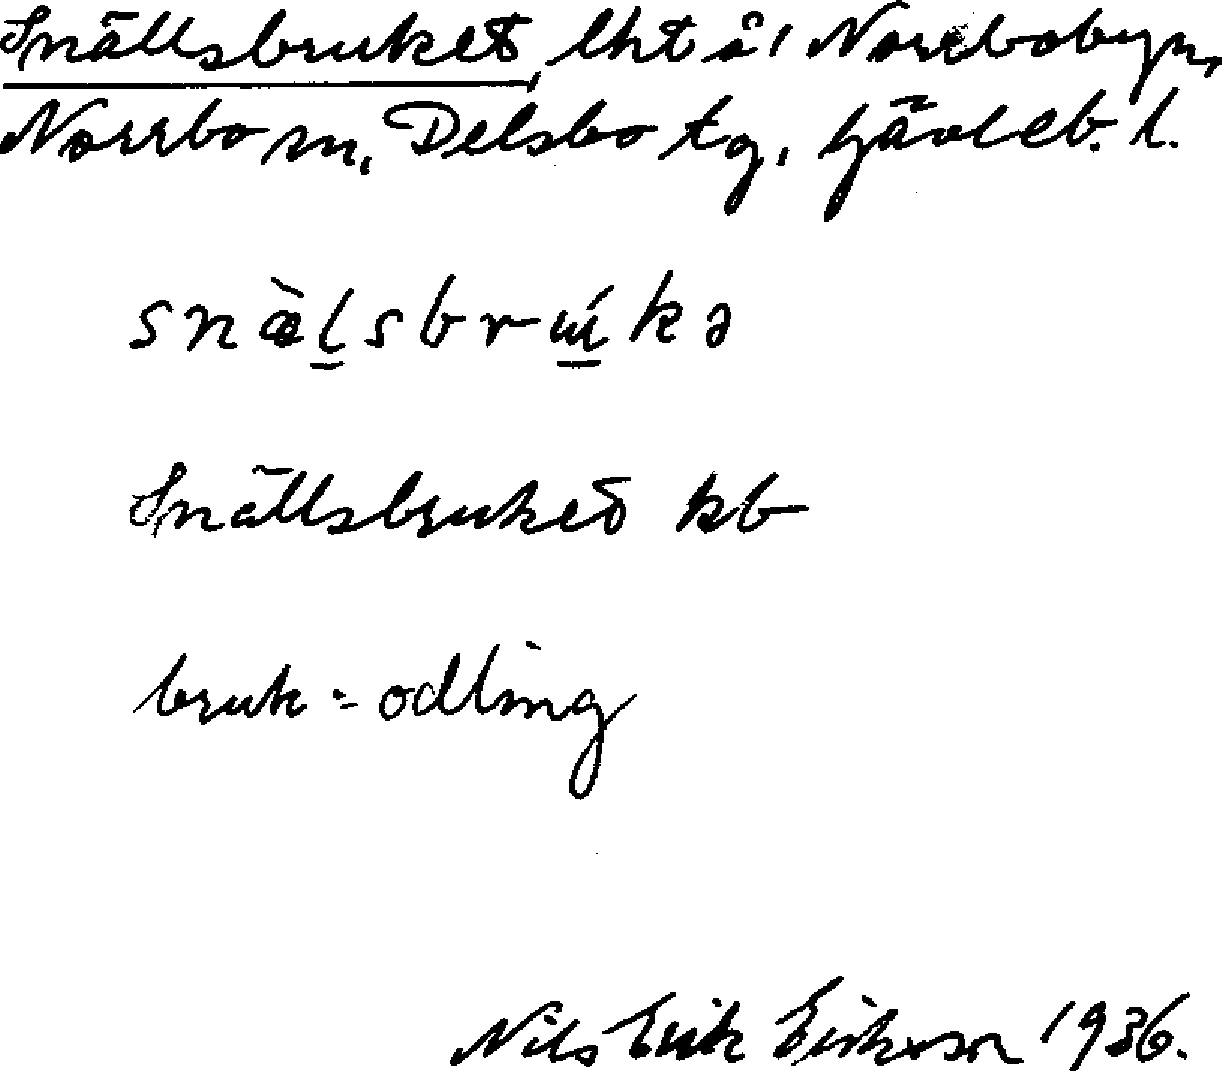 Snällsbruket, lht å 1 Norrbobyn,
Norrbo sn, Delsbo tg, Gävleb. l.
snæ̀lsbrɯ́kə
Snällsbruket kb
bruk = odling
Nils Erik Eriksson 1936.